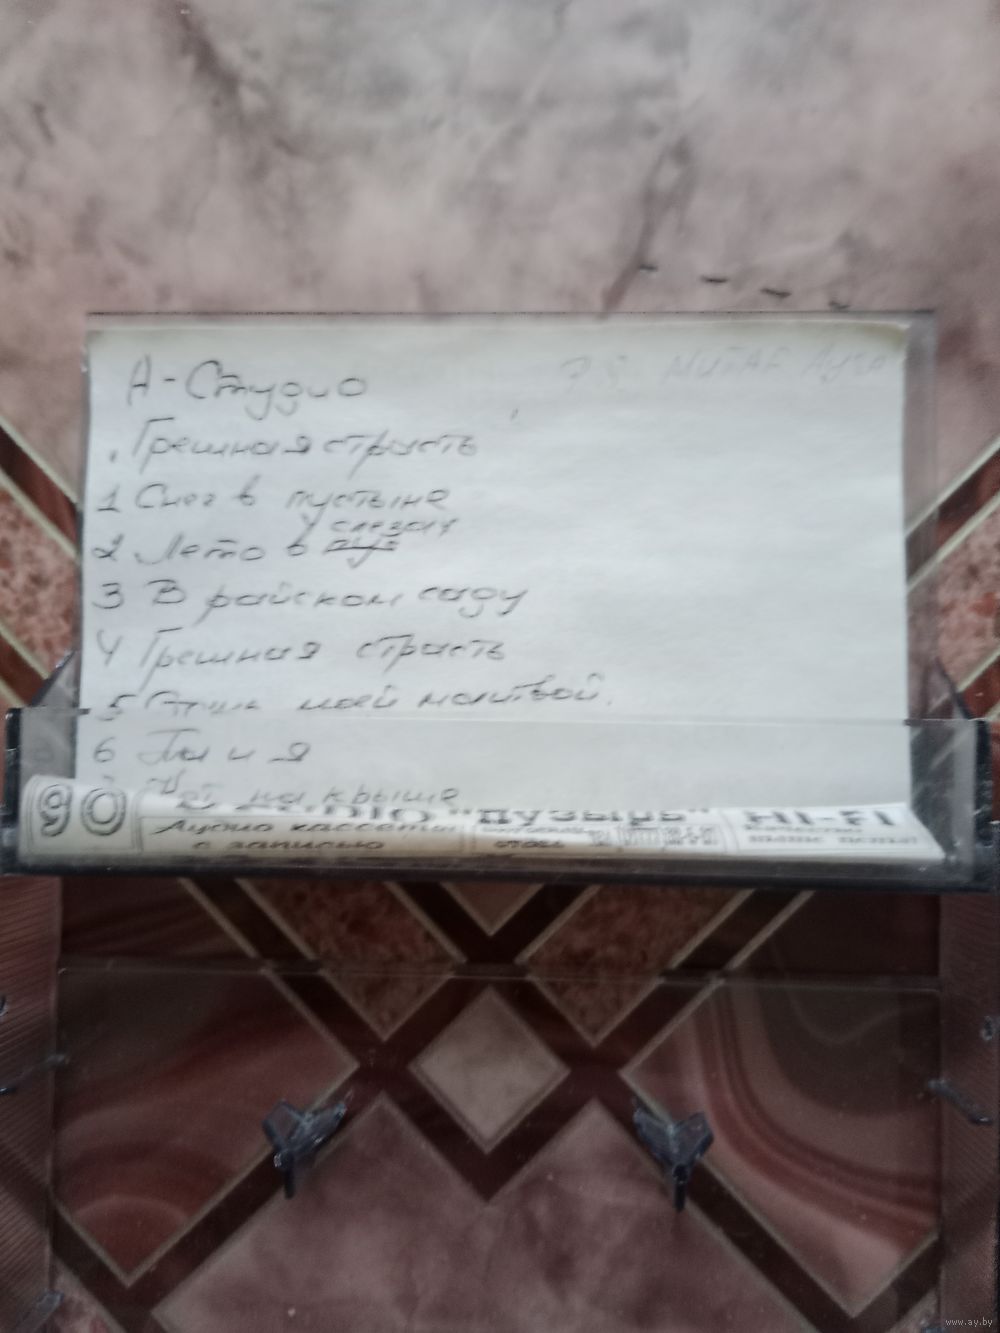 А-Студио
Грешная страсть
1 Снег в пустыне
слезах
2 Лето в
3 В райском саду
4 Грешная страсть
5 моей молитвой.
6 Ты и я
на крыше
90
"пузырь"
HI-FI
Аудио кассеты
с записью
www.ay.by